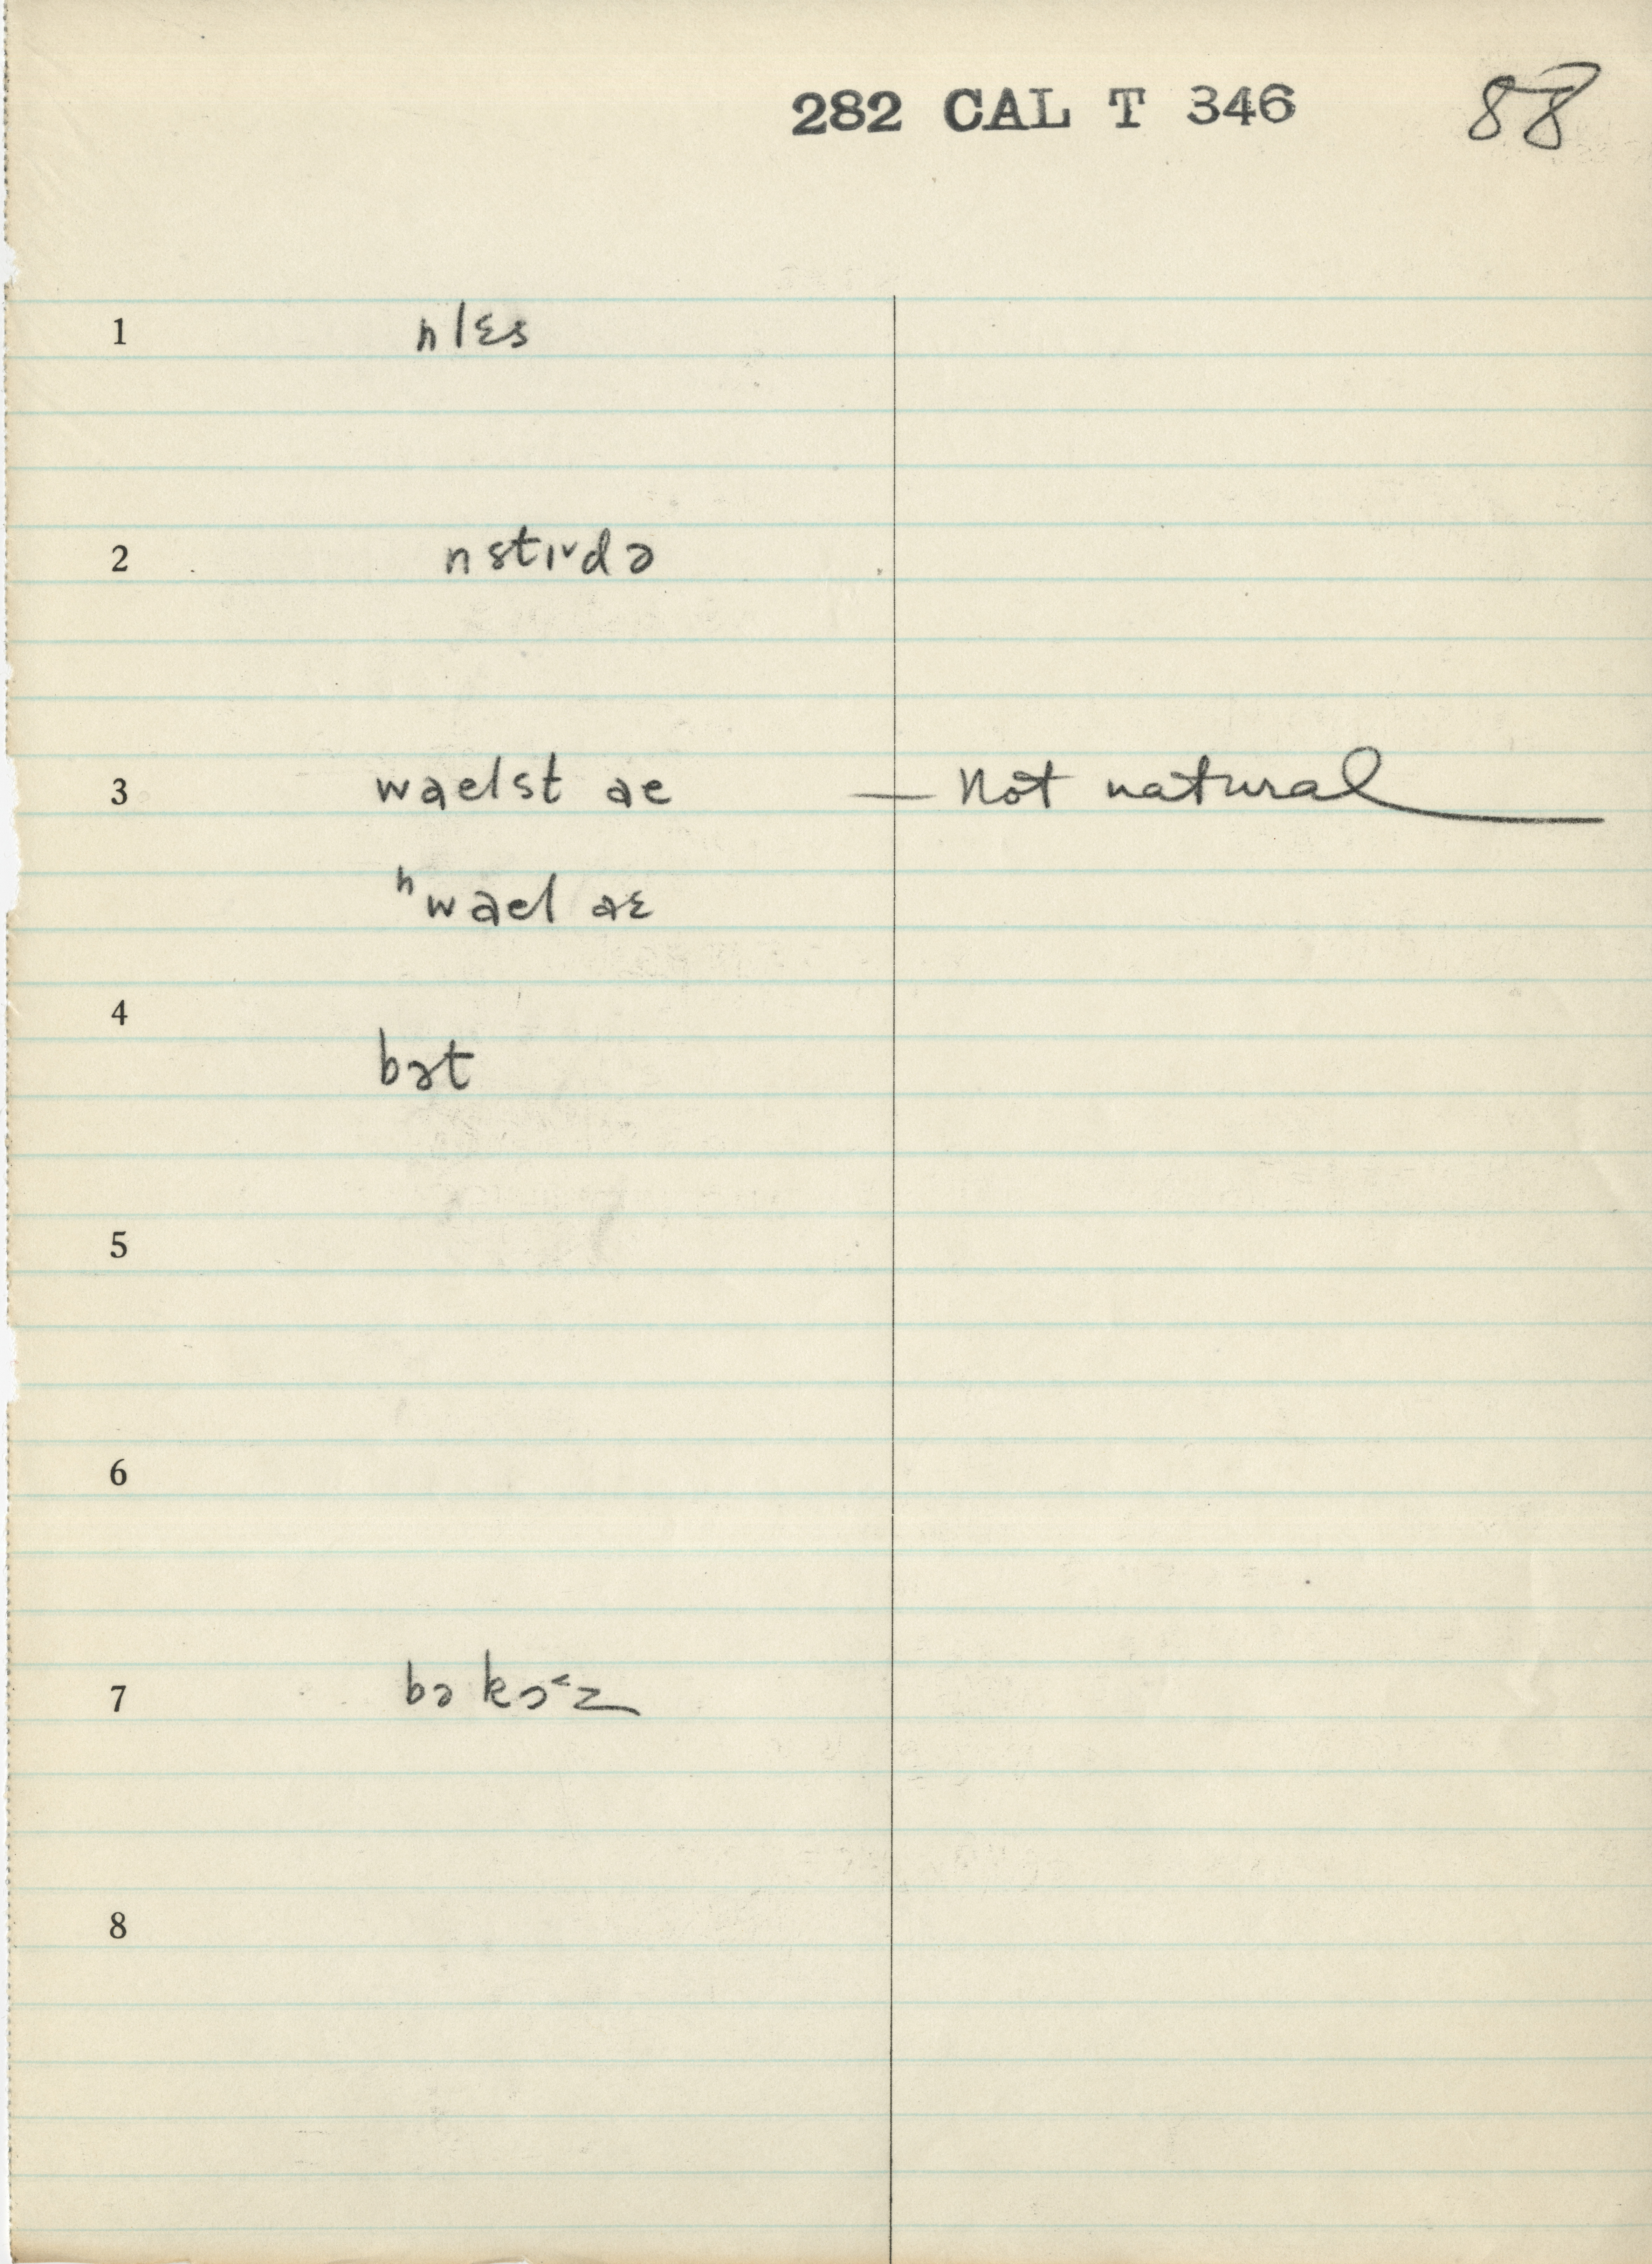 282 CAL T 346 88
1 nlɛs
2 nstɪ˅də
3 waelst ae — Not natural
ʰwael aɛ
4 bət
5
6
7 bə kɔ˂z
8